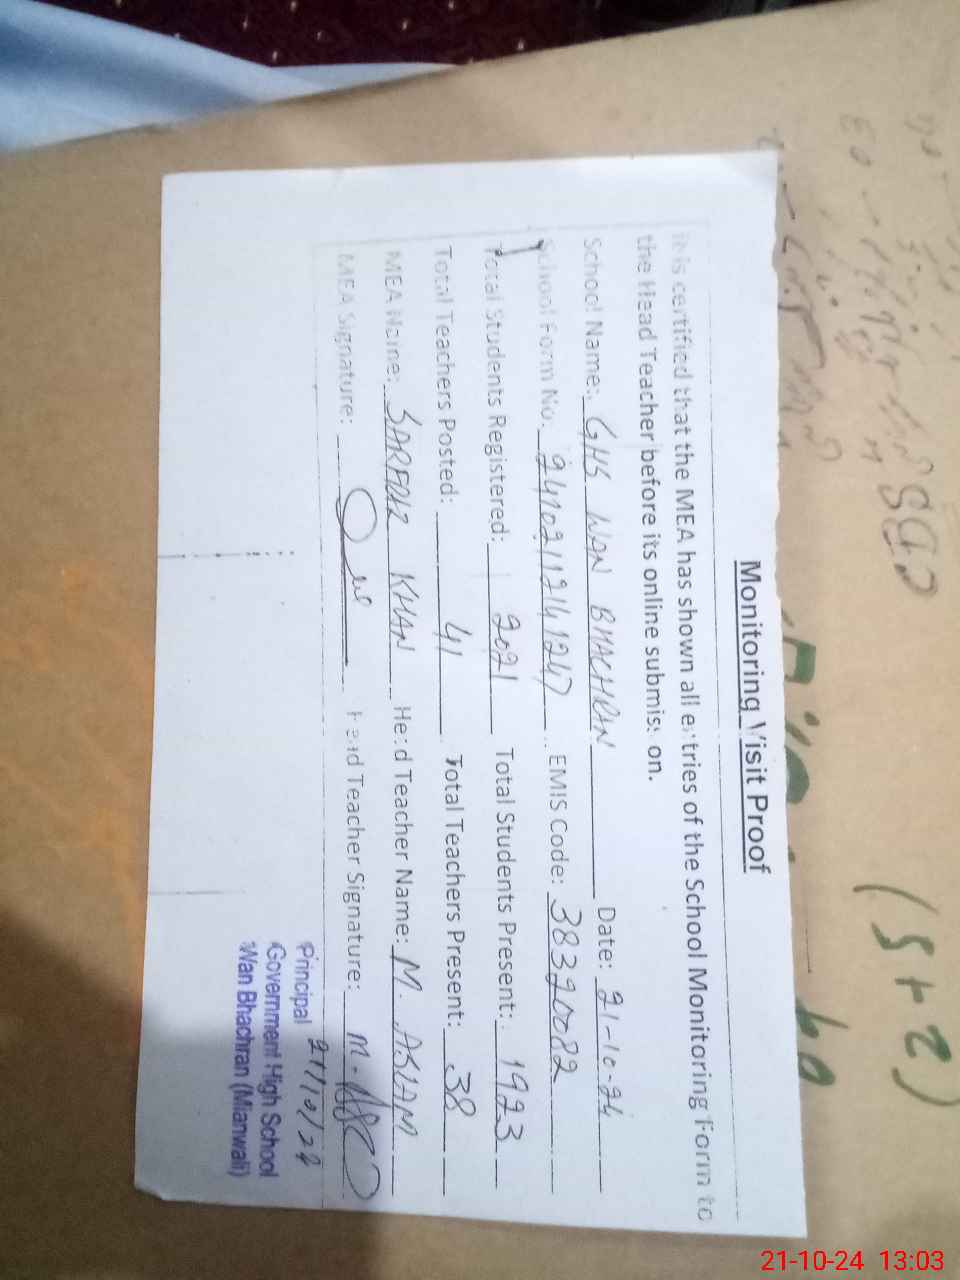 Monitoring Visit Proof
It is certified that the MEA has shown all entries of the School Monitoring Form to
the Head Teacher before its online submission.
School Name: GHS WAN BHACHRAN Date: 21-10-24
School Form No. 24102112141247 EMIS Code: 38320082
Total Students Registered: 2021 Total Students Present: 1923
Total Teachers Posted: 41 Total Teachers Present: 38
MEA Name: SARFRAZ KHAN Head Teacher Name: M. ASLAM
MEA Signature: Head Teacher Signature:
Principal 21/10/24
Government High School
Wan Bhachran (Mianwali)
(5+2)
21-10-24 13:03